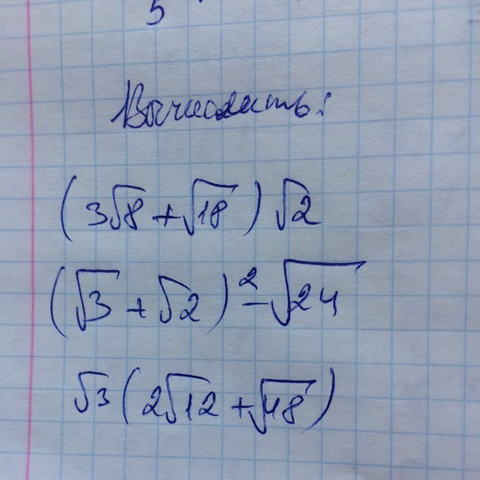 5
Вычислить:
(3√8 + √18) √2
(√3 + √2)² - √24
√3 (2√12 + √48)